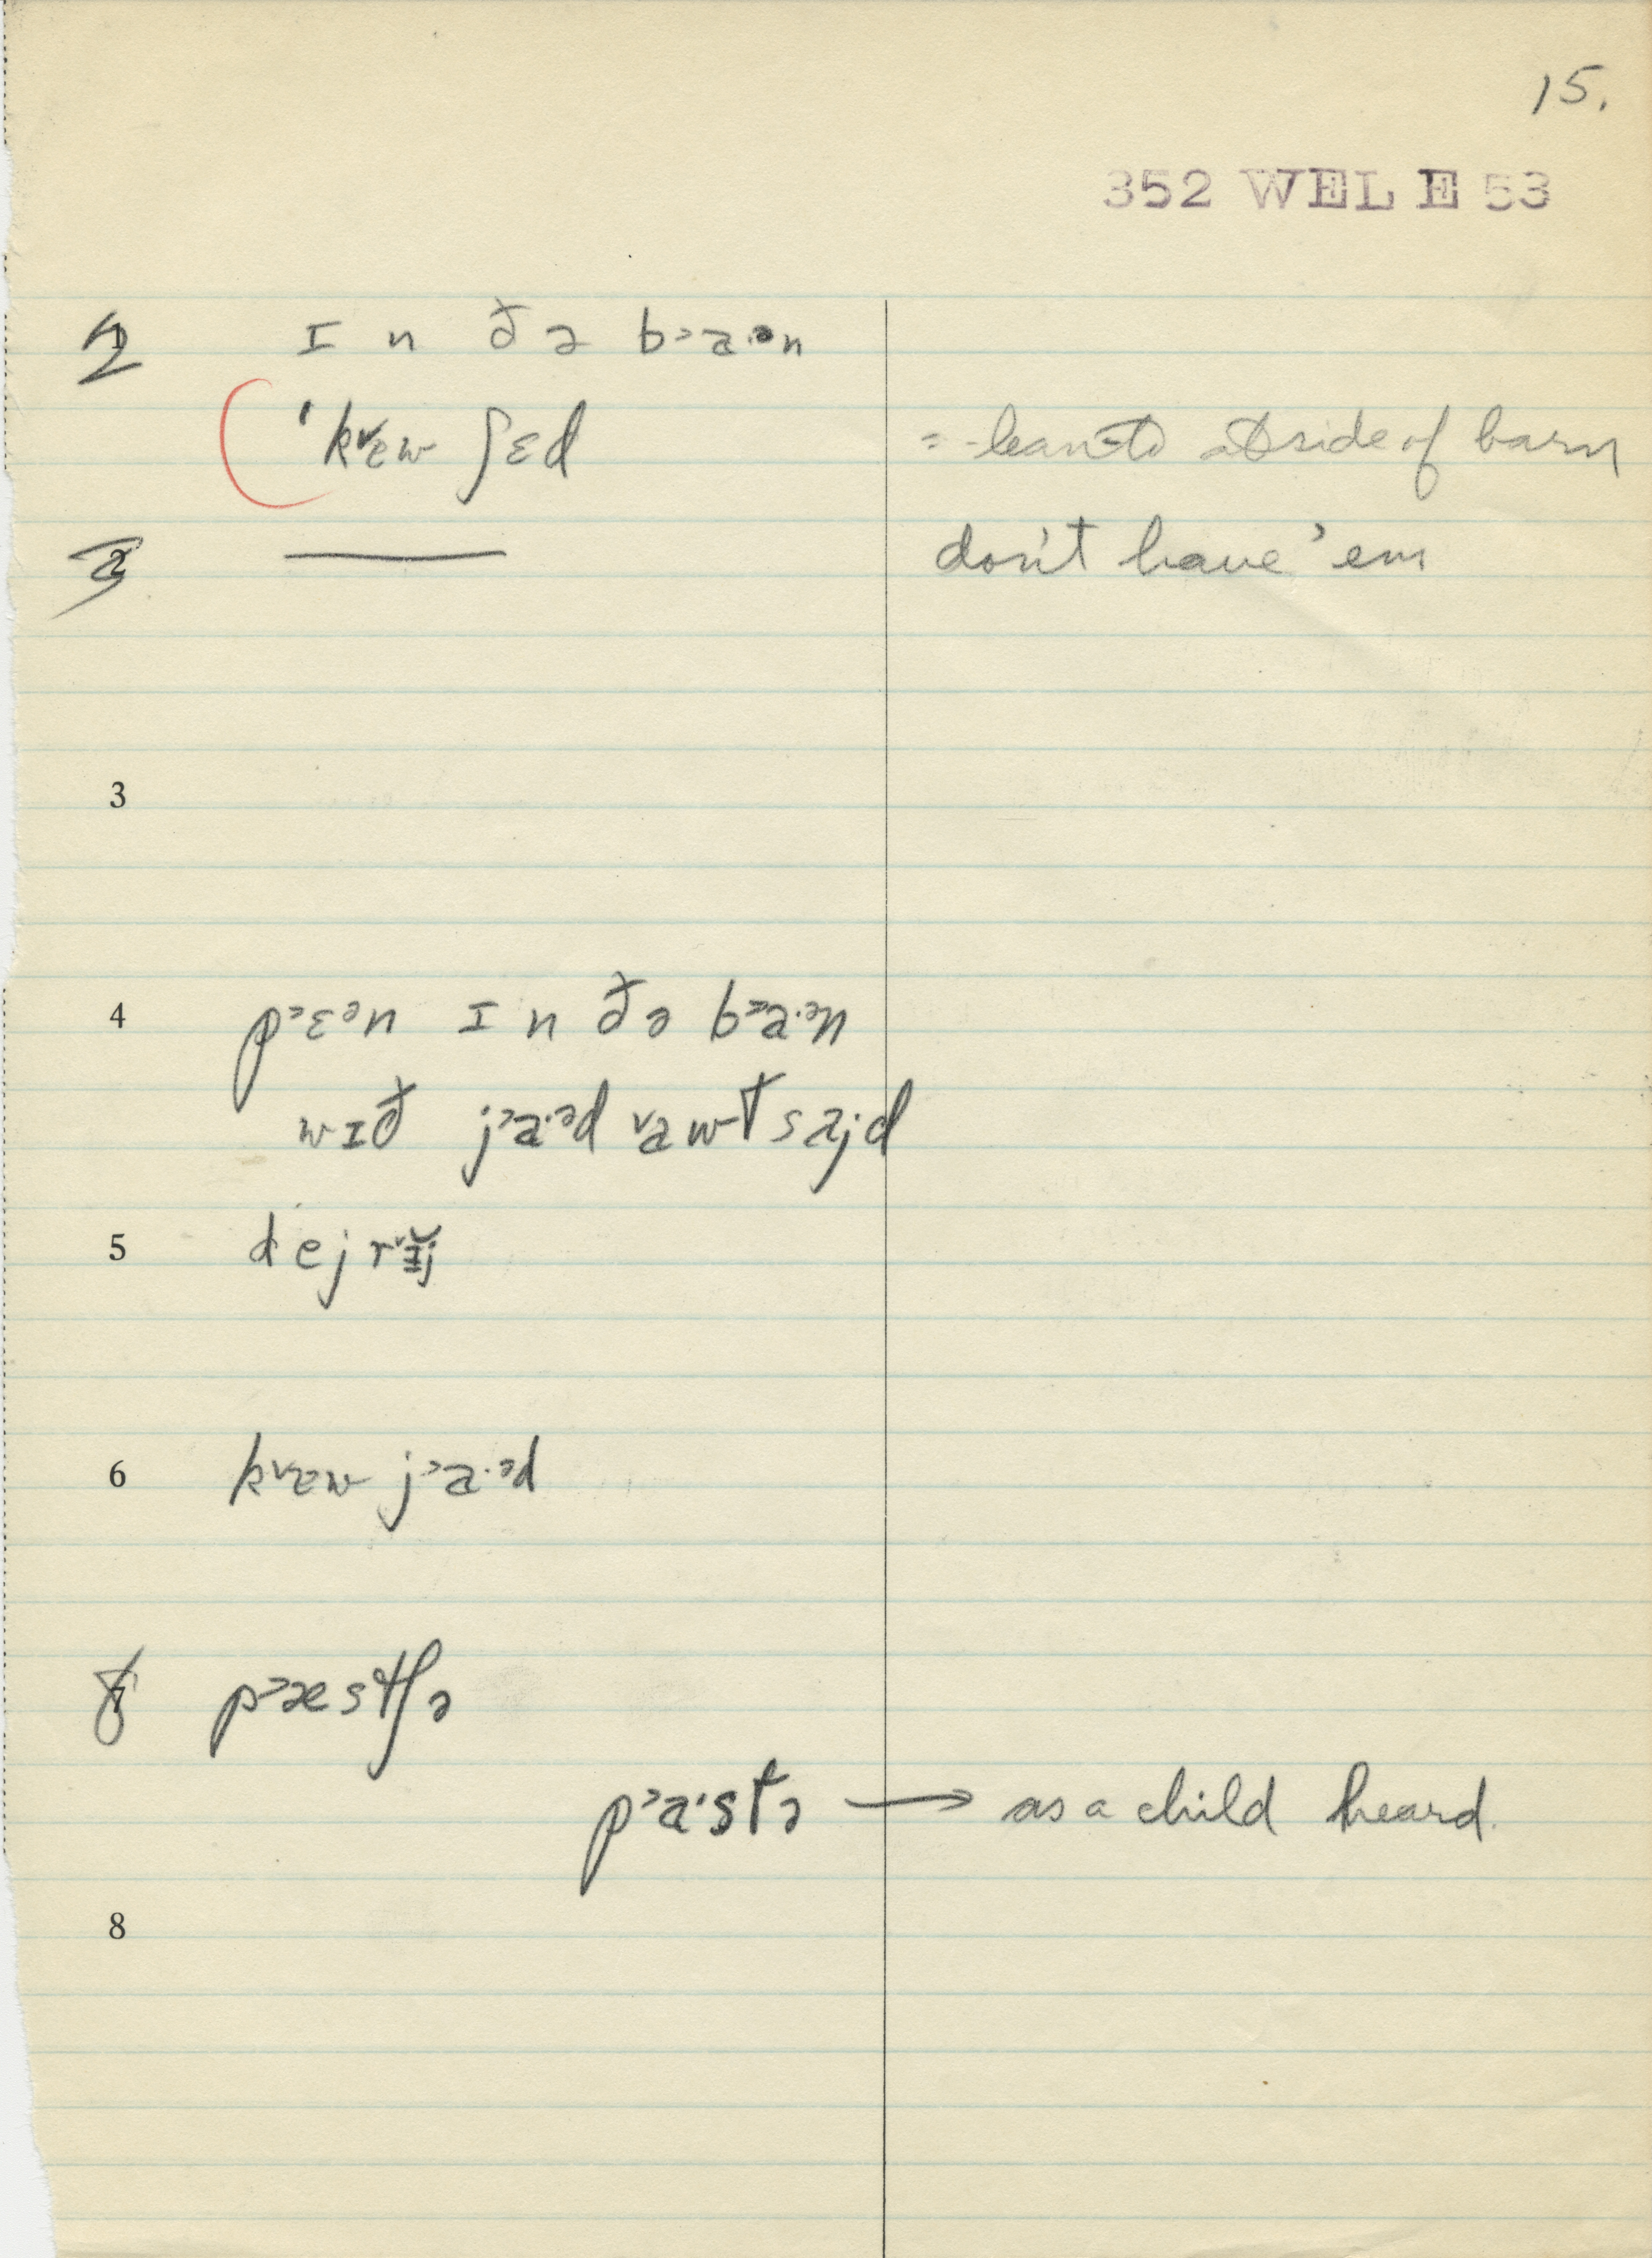 15.
352 WEL E 53
2 ɪ n ð ə b˃a·ᵊn
ˈk˅ɛw ʃɛd =lean-to at side of barn
3 — don't have 'em
3
4 p˃ɛᵊn ɪ n ð ə b˃a·ᵊn
wɪð j˃a·ᵊd ˅awt saj·d
5
6 k˅ɛw j˃a·ᵊd
8 p˃æstʃə
p˃a·stə → as a child heard.
8